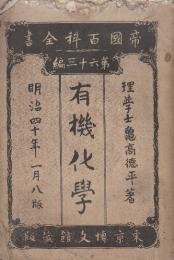 帝國百科全書
第六十三編
理學士龜髙德平著
有機化學
明治四十年一月八版
東京博文館藏版